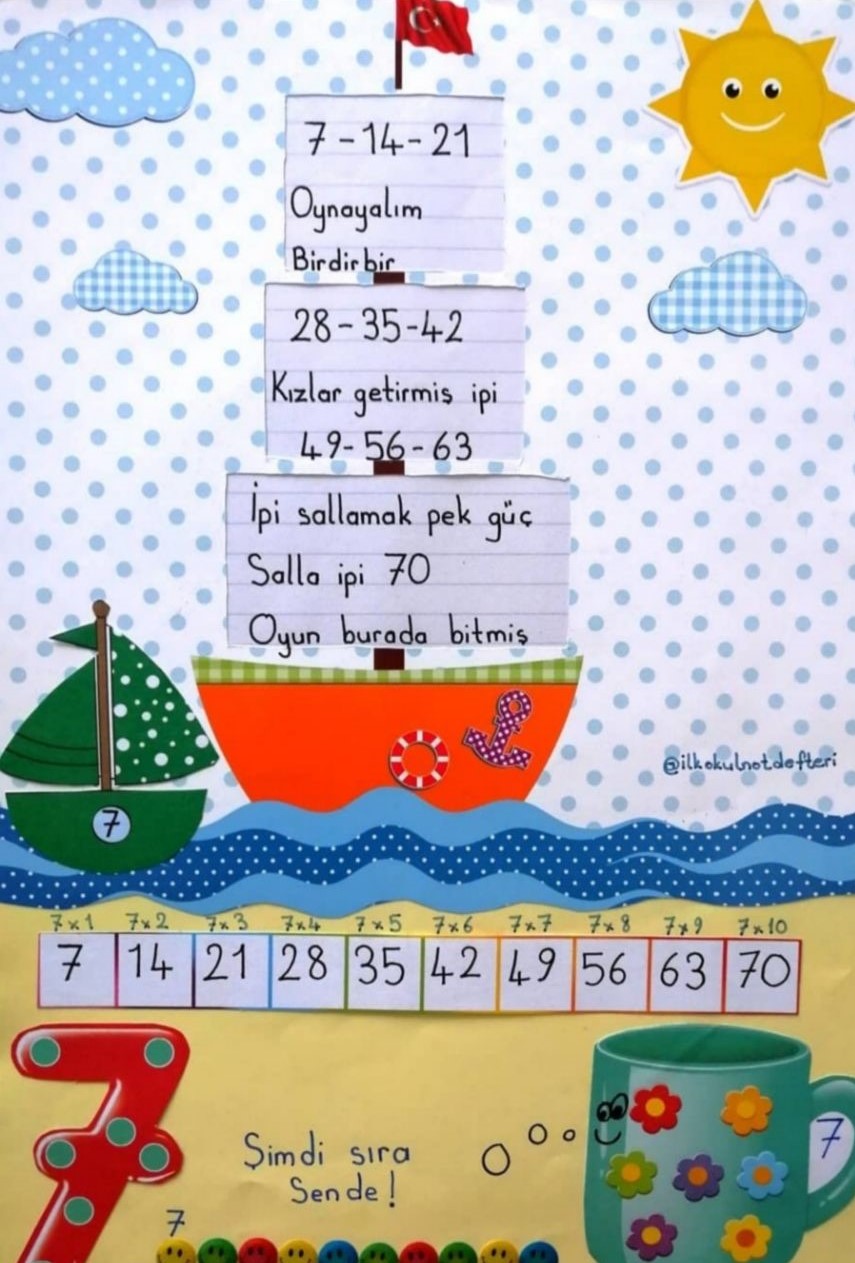 7-14-21
Oynayalım
Birdirbir
28-35-42
Kızlar getirmiş ipi
49-56-63
İpi sallamak pek güç
Salla ipi 70
Oyun burada bitmiş
@ilkokulnotdefteri
7
7x1 7x2 7x3 7x4 7x5 7x6 7x7 7x8 7x9 7x10
7 14 21 28 35 42 49 56 63 70
7
7
Şimdi sıra
Sende!
7